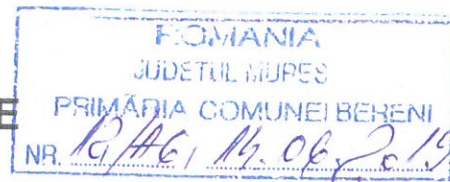 ROMANIA
JUDETUL MURES
E PRIMĂRIA COMUNEI BERENI
NR. 14.06.2019